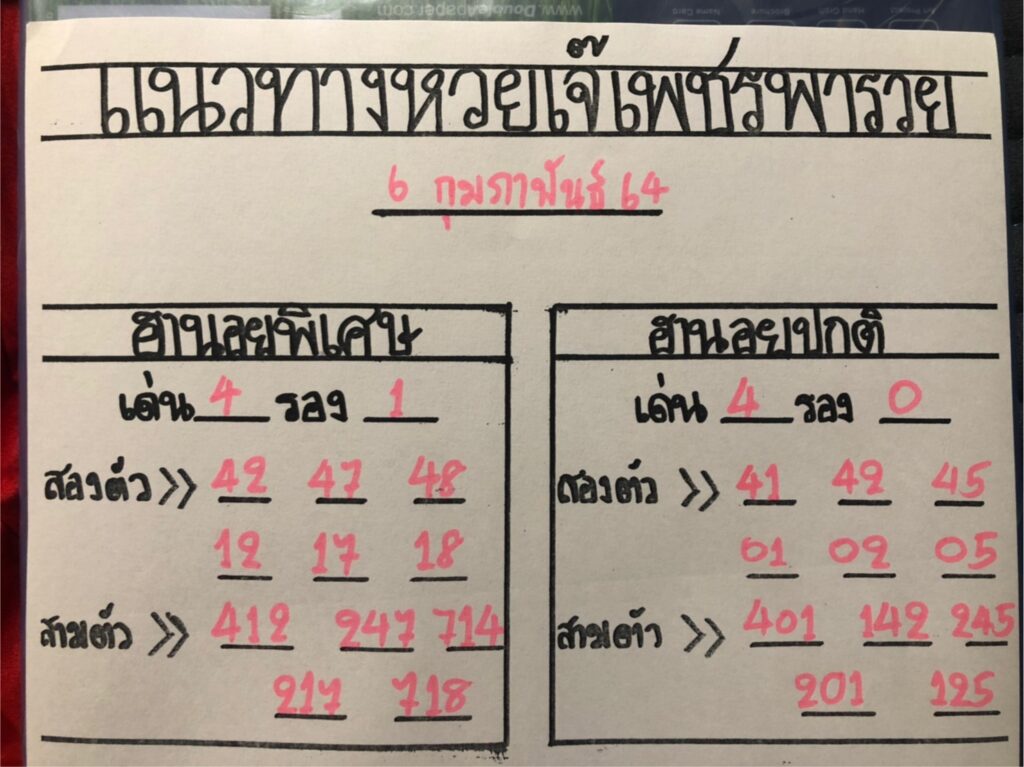 www.DoubleApaper.com
Name Card
Brochure
Hand Craft
Art Project
แนวทางหวยเจ๊เพชรพารวย
6 กุมภาพันธ์ 64
ฮานอยพิเศษ
เด่น 4 รอง 1
สองตัว >> 42 47 48
12 17 18
สามตัว >> 412 247 714
217 718
ฮานอยปกติ
เด่น 4 รอง 0
สองตัว >> 41 42 45
01 02 05
สามตัว >> 401 142 245
201 125